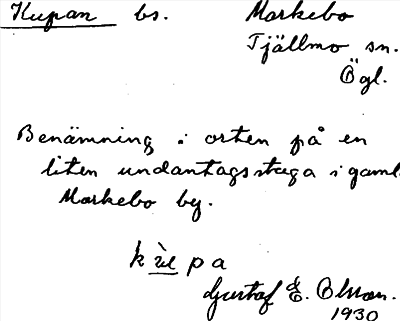 Kupan bs. Markebo
Tjällmo sn.
Ögl.
Benämning i orten på en
liten undantagsstuga i gamla
Markebo by.
pa
Gustaf E. Olsson.
1930